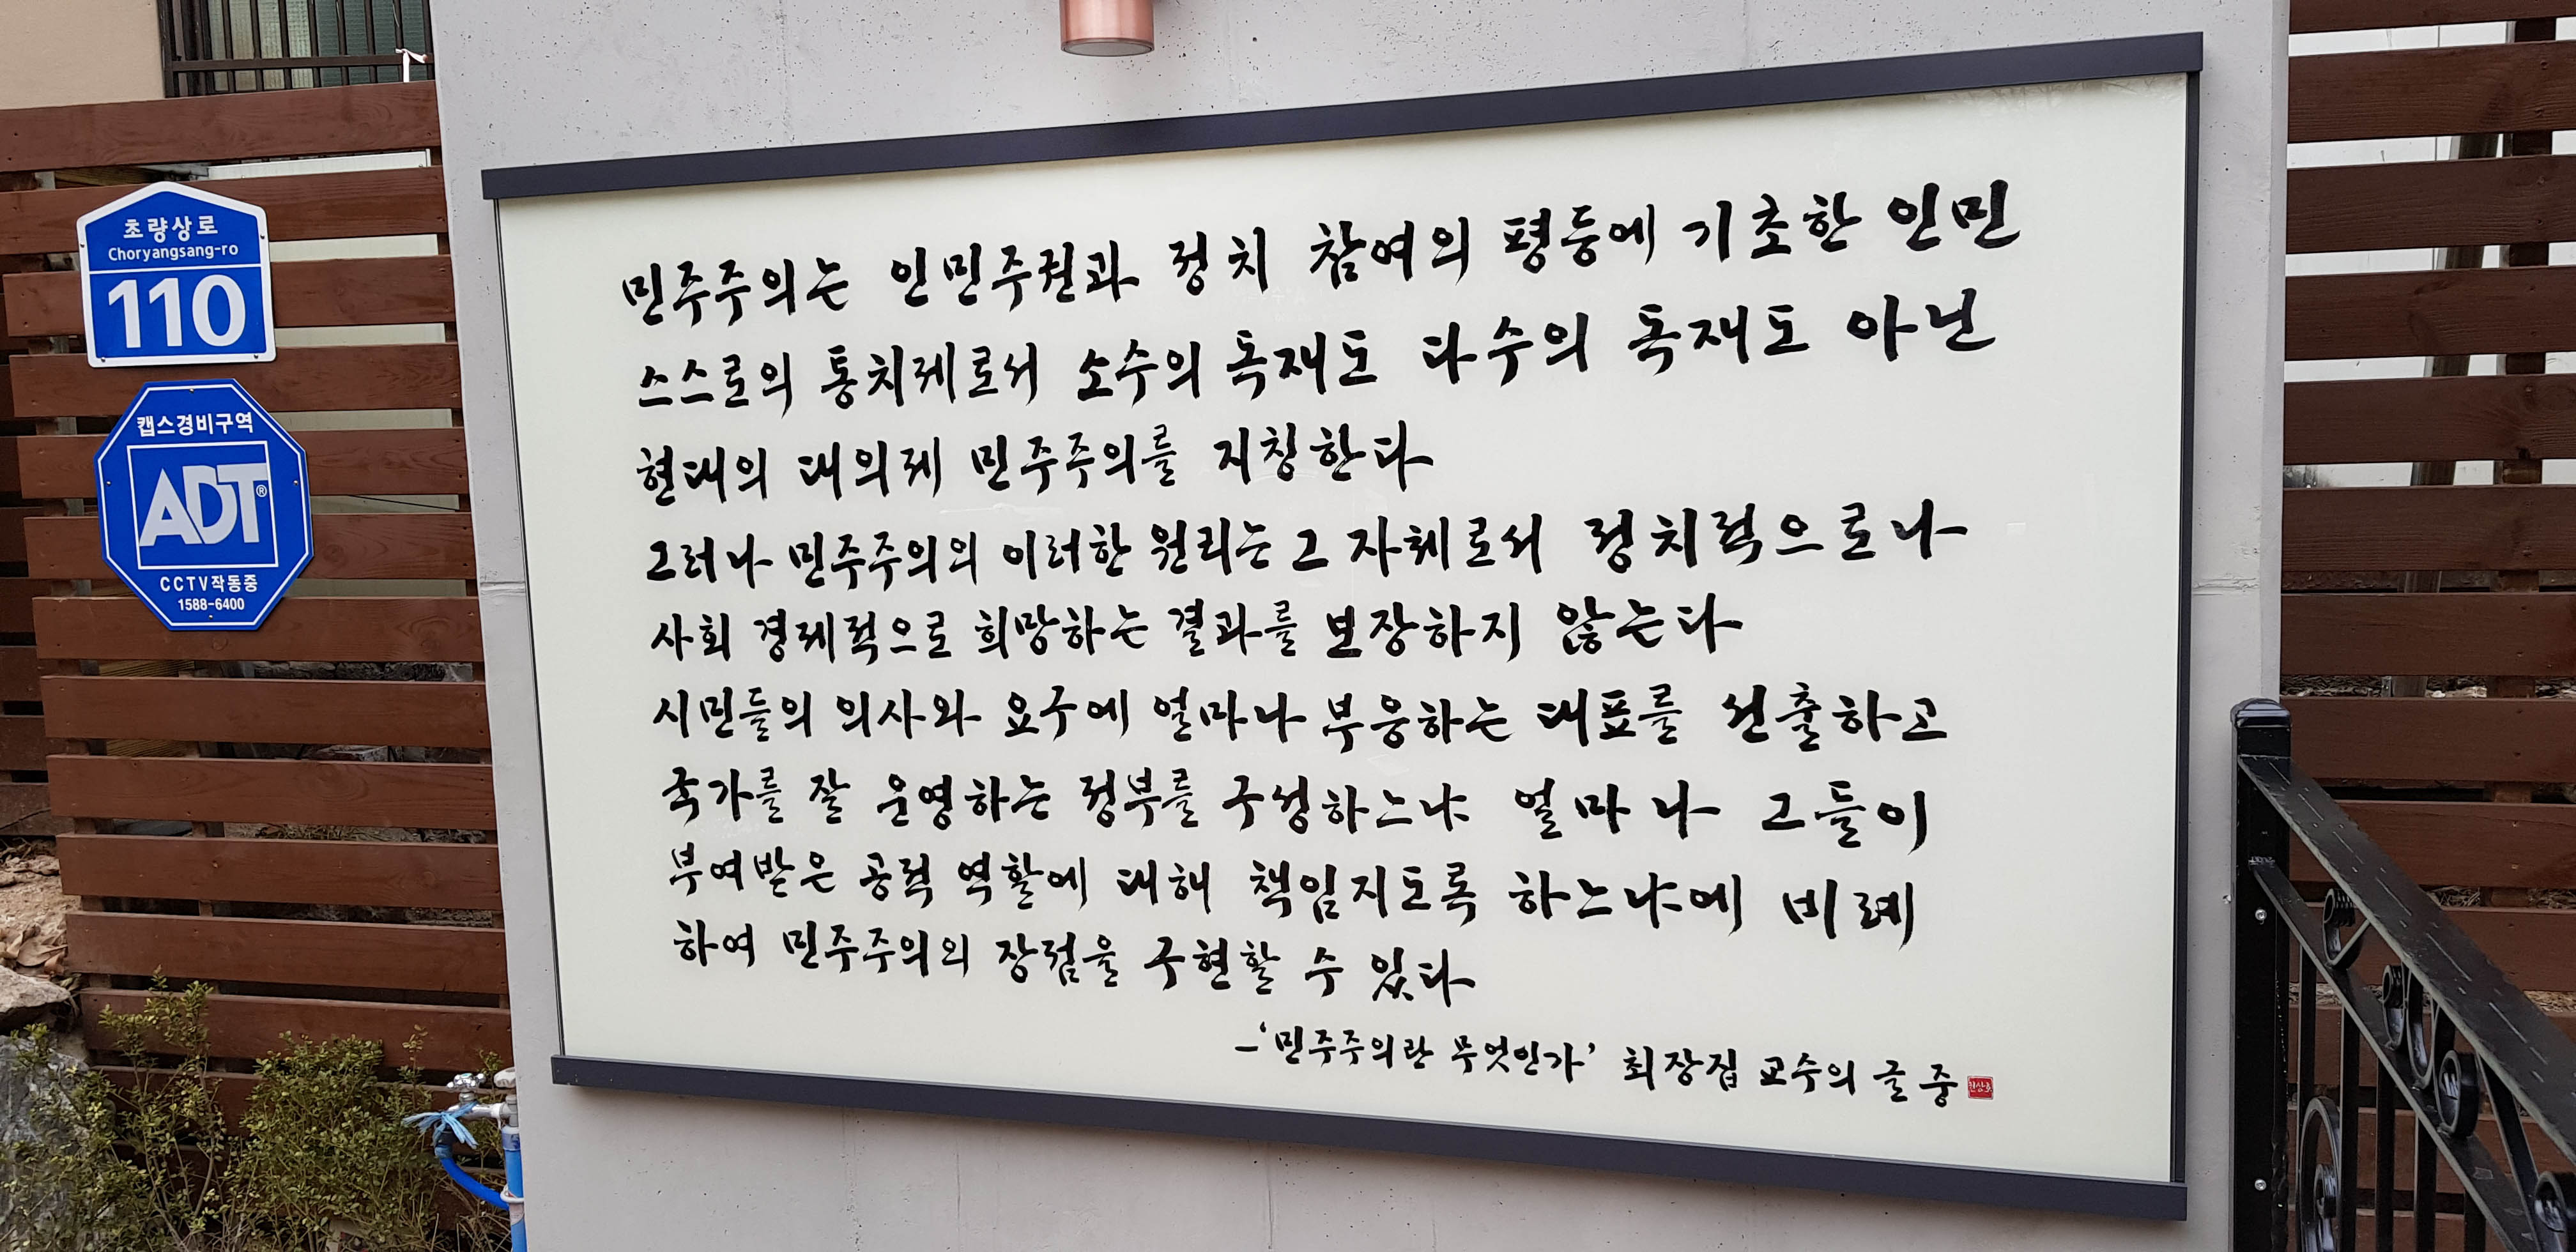 초량상로
Choryangsang-ro
110
캡스경비구역
ADT®
CCTV작동중
1588-6400
민주주의는 인민주권과 정치 참여의 평등에 기초한 인민
스스로의 통치체로서 소수의 독재도 다수의 독재도 아닌
현대의 대의제 민주주의를 지칭한다
그러나 민주주의의 이러한 원리는 그 자체로서 정치적으로나
사회 경제적으로 희망하는 결과를 보장하지 않는다
시민들의 의사와 요구에 얼마나 부응하는 대표를 선출하고
국가를 잘 운영하는 정부를 구성하느냐 얼마나 그들이
부여받은 공적 역할에 대해 책임지도록 하느냐에 비례
하여 민주주의의 장점을 구현할 수 있다
-'민주주의란 무엇인가' 최장집 교수의 글 중